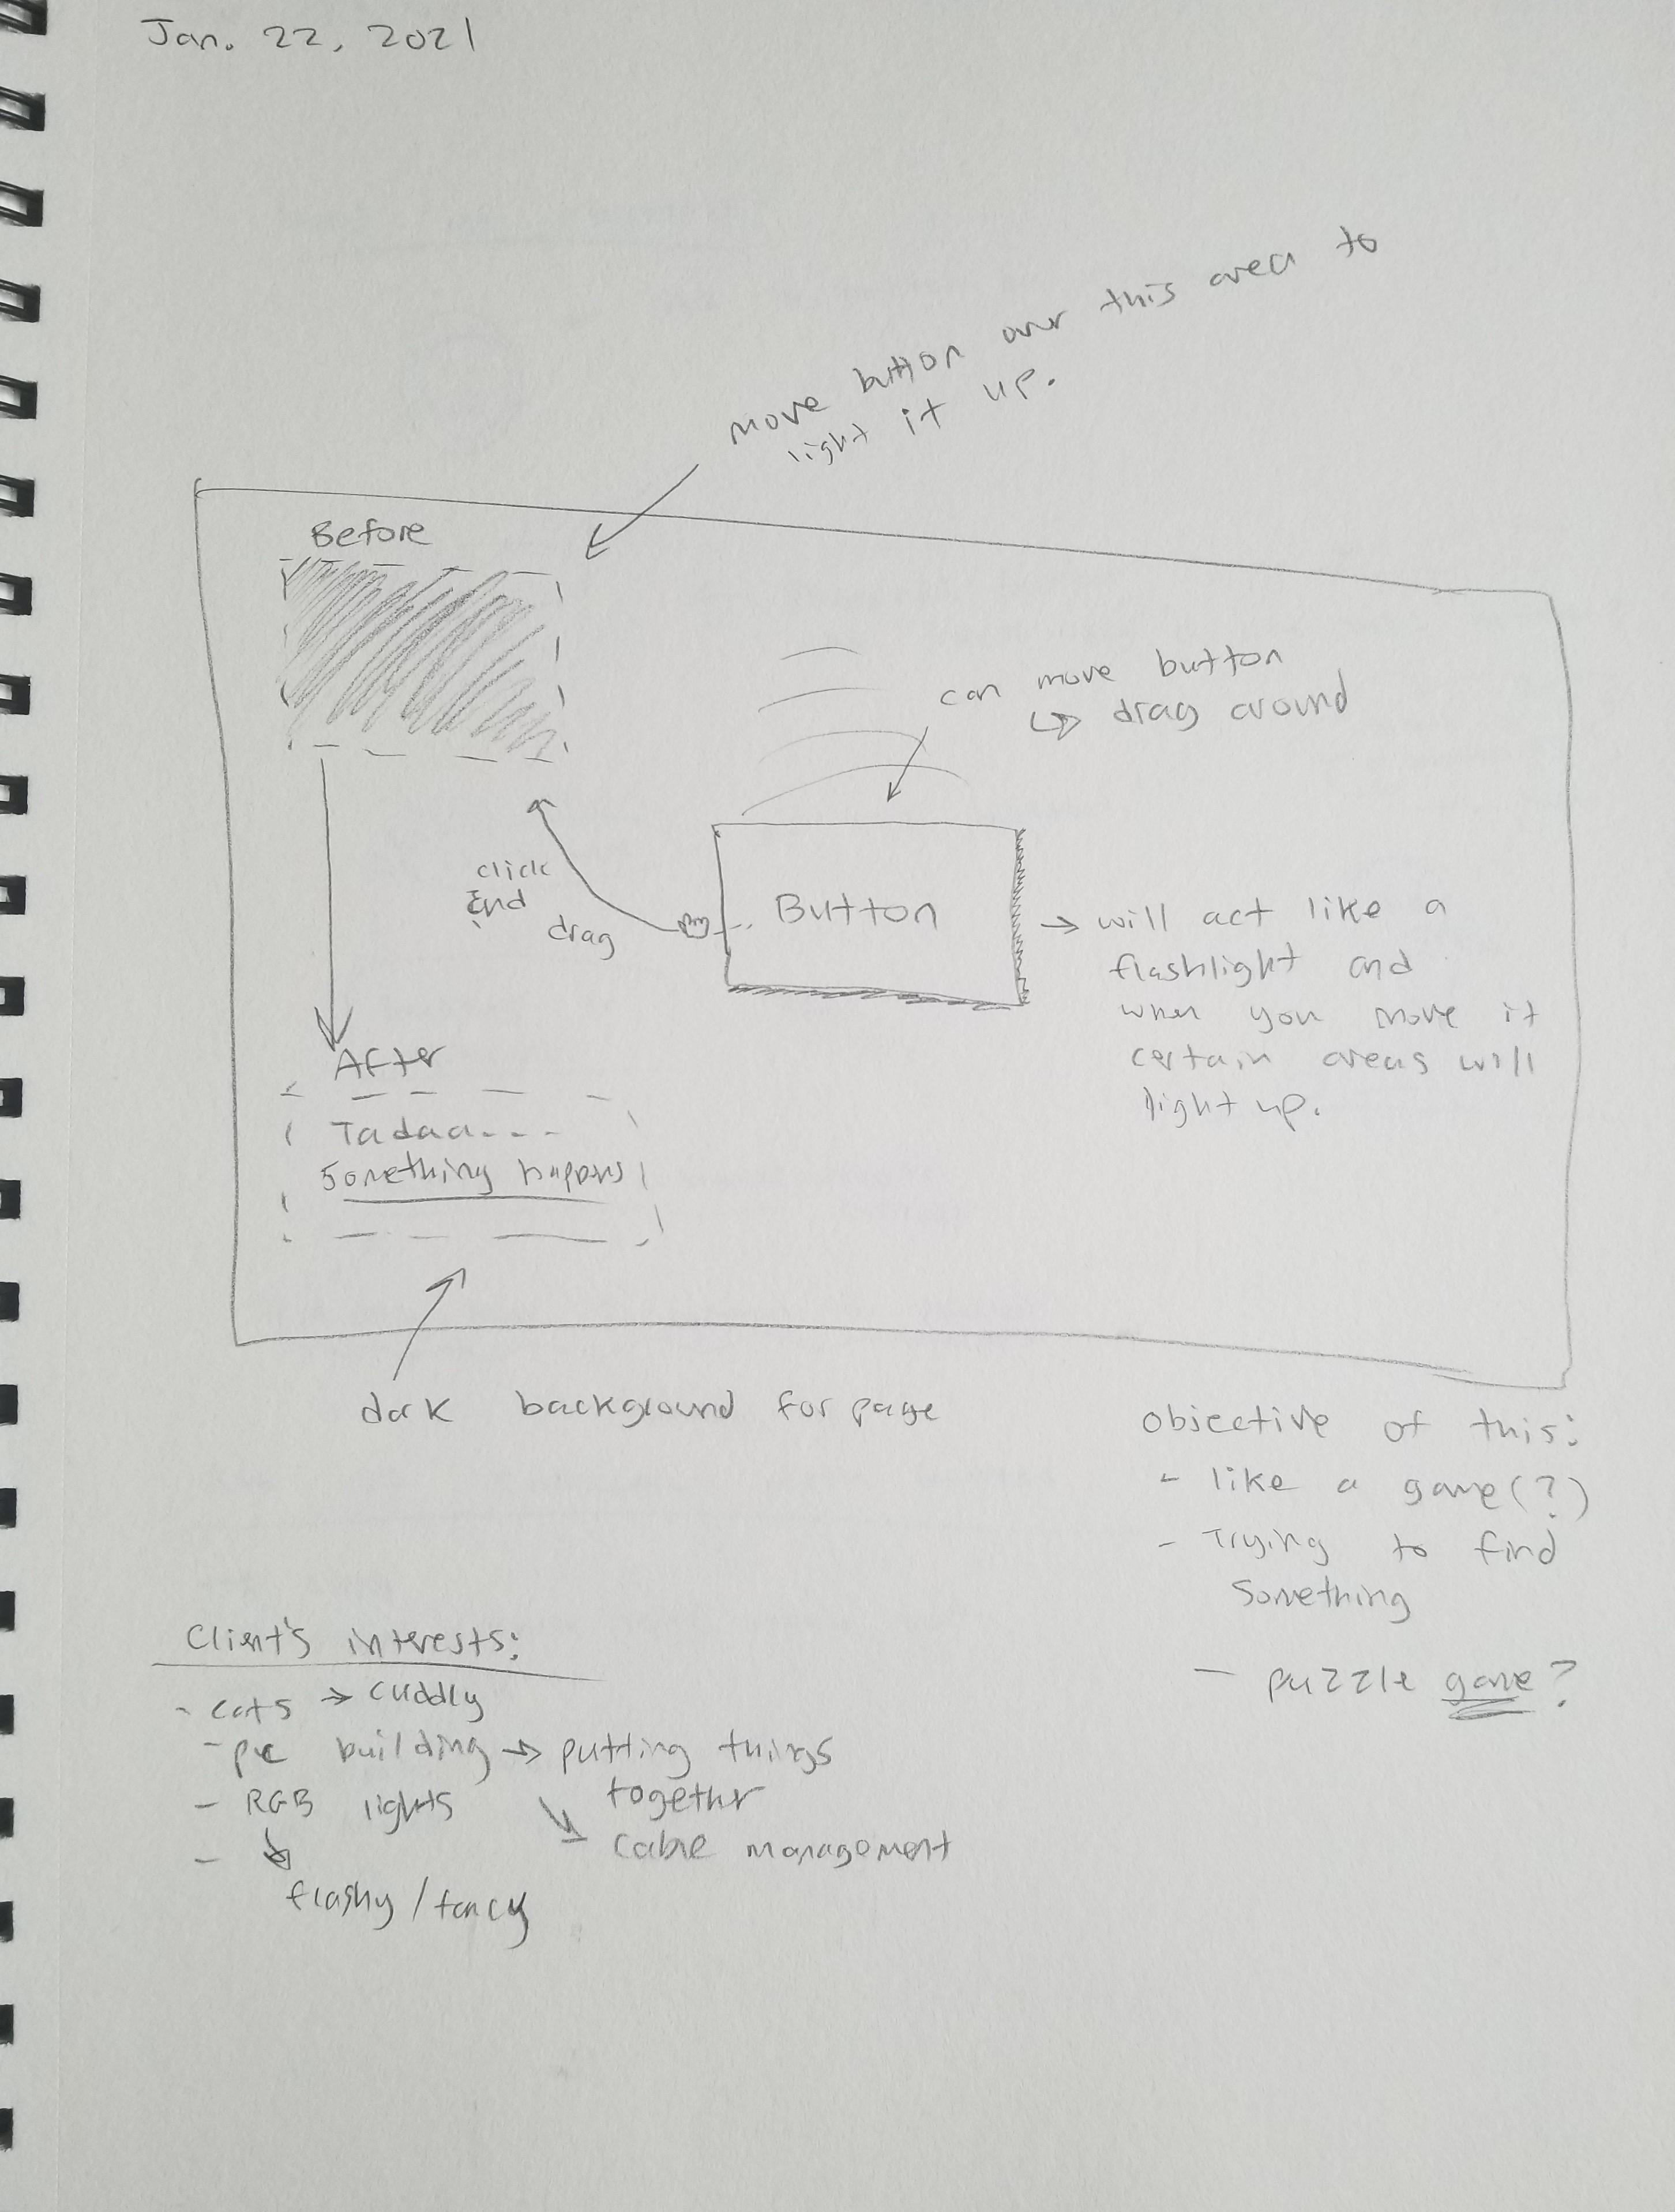 Jan. 22, 2021
move button over this area to
light it up.
Before
can move button
↳ drag around
click
and
drag
Button
→ will act like a
flashlight and
when you move it
certain areas will
light up.
After
Tadaa...
Something happens
dark background for page
Objective of this:
- like a game(?)
- Trying to find
Something
- puzzle game?
Client's interests:
- cats → cuddly
- pc building → putting things
together
- RGB lights
cable management
-
flashy/fancy